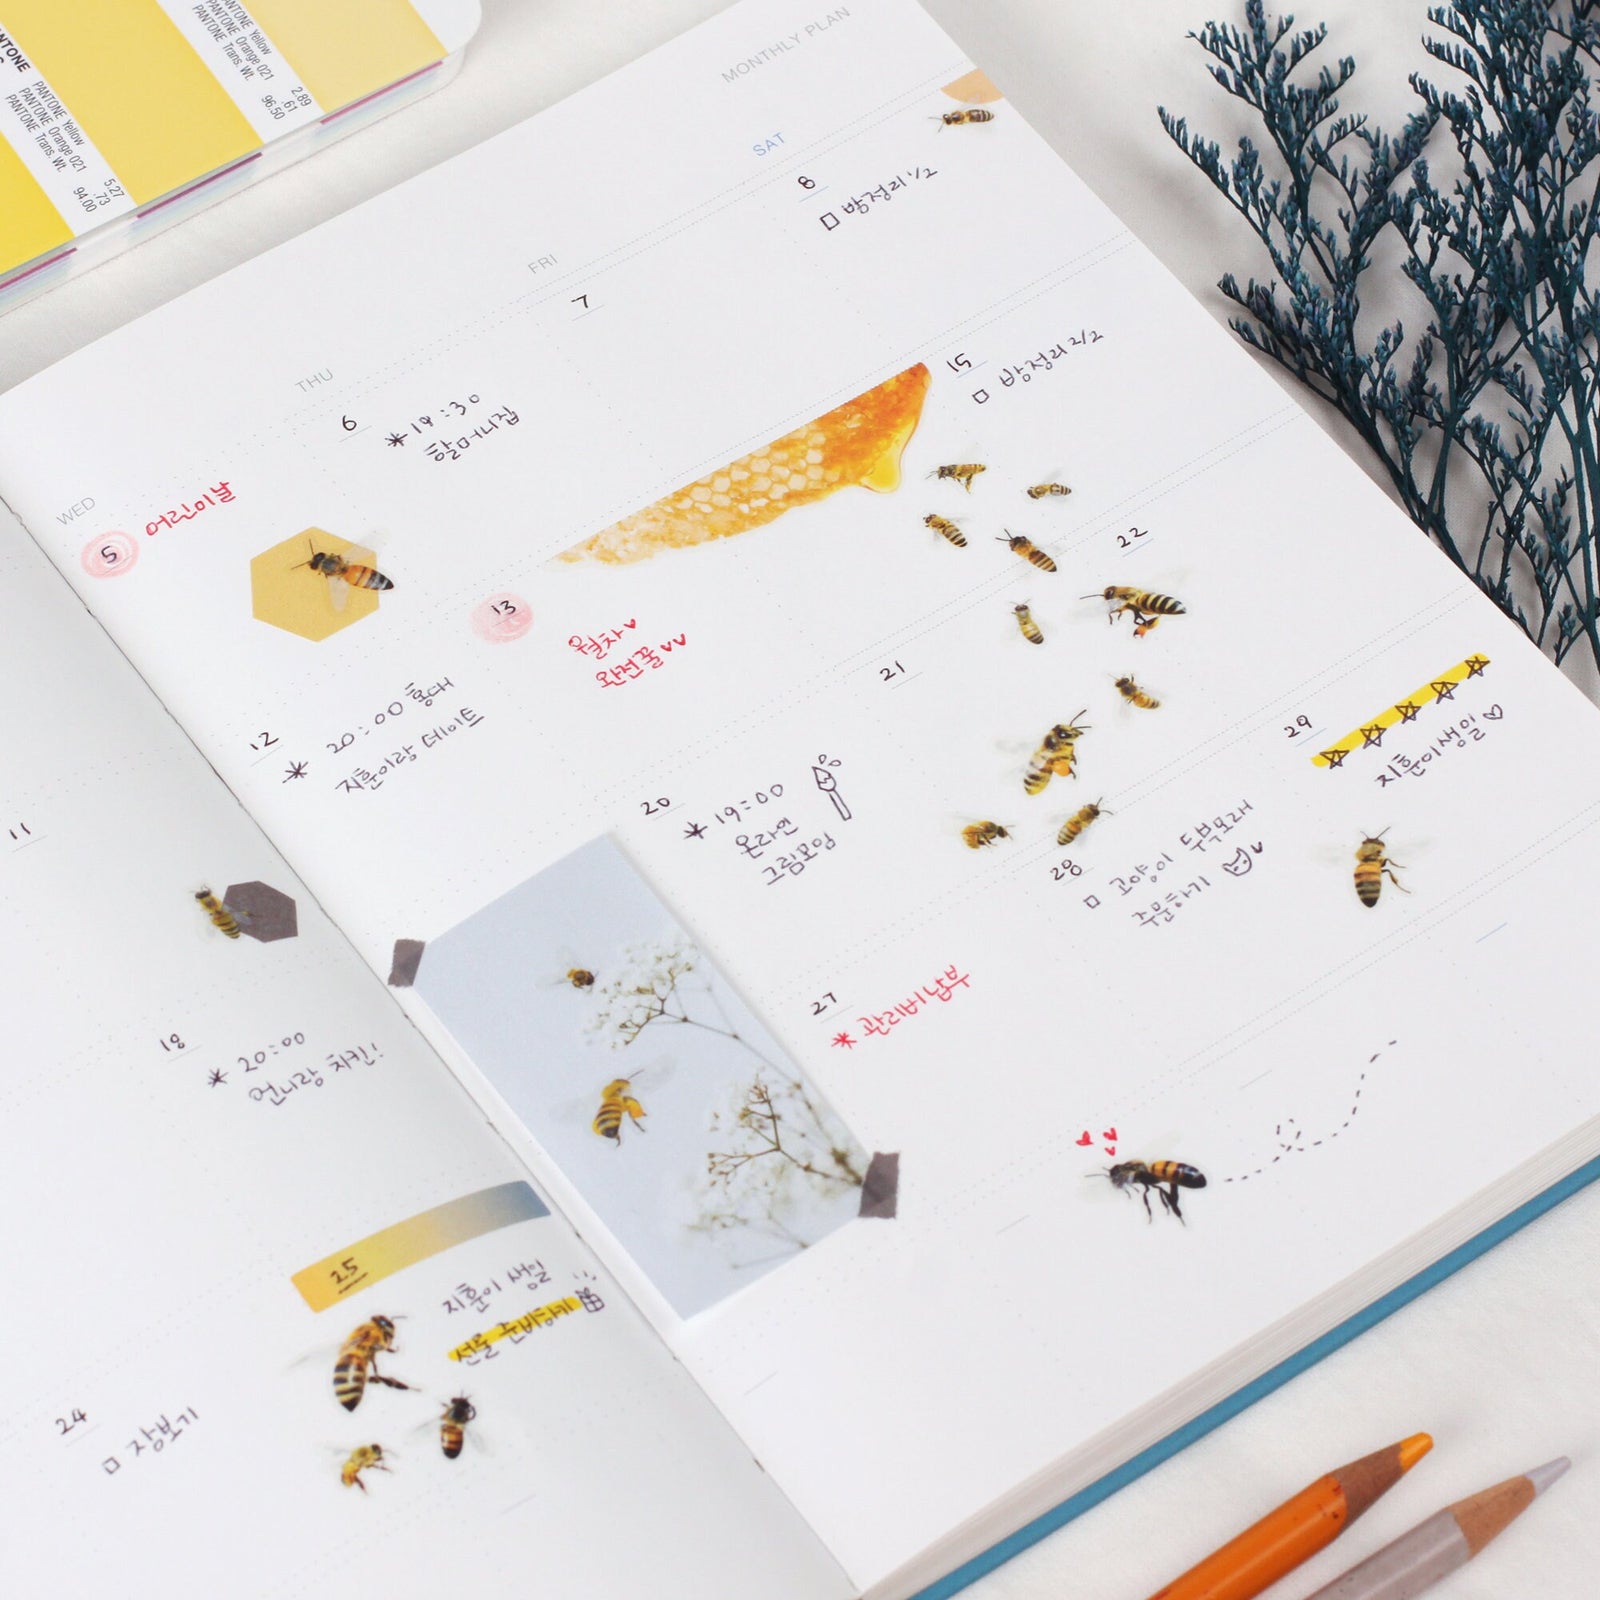 PANTONE
PANTONE Yellow 2.89
PANTONE Orange 021 .61
PANTONE Trans. Wt. 96.50
PANTONE Yellow 5.27
PANTONE Orange 021 .73
PANTONE Trans. Wt. 94.00
MONTHLY PLAN
WED
THU
FRI
SAT
5
어린이날
6
*19:30
할머니집
7
8
방정리 1/2
11
12
* 20:00 홍대
지훈이랑 데이트
13
월차
완전꿀
15
방정리 2/2
18
* 20:00
언니랑 치킨!
20
* 19:00
온라인
그림모임
21
22
24
장보기
25
지훈이 생일
선물 준비하기
27
* 관리비 납부
28
고양이 두부모래
주문하기
29
지훈이생일